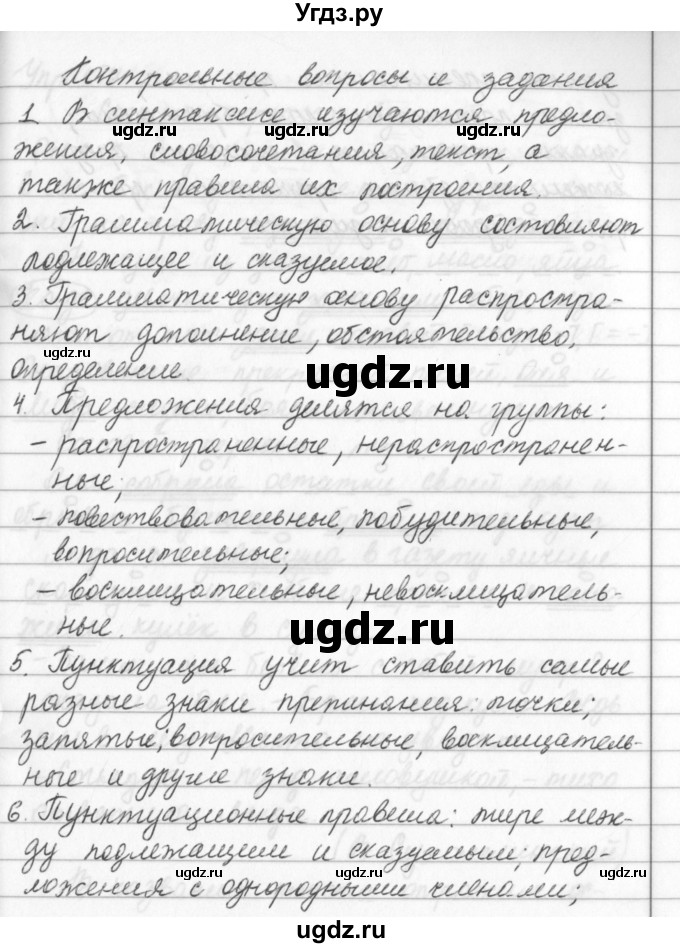 Угдз.ру
Контрольные вопросы и задания
1. В синтаксисе изучаются предло-
жения, словосочетания, текст, а
также правила их построения.
2. Грамматическую основу составляют
подлежащее и сказуемое.
3. Грамматическую основу распростра-
няют дополнение, обстоятельство,
определение.
4. Предложения делятся на группы:
– распространенные, нераспространен-
ные;
– повествовательные, побудительные,
вопросительные;
– восклицательные, невосклицатель-
ные.
5. Пунктуация учит ставить самые
разные знаки препинания: точки;
запятые; вопросительные, восклицатель-
ные и другие знаки.
6. Пунктуационные правила: тире меж-
ду подлежащим и сказуемым; пред-
ложения с однородными членами;
ugdz.ru
ugdz.ru
ugdz.ru
ugdz.ru
ugdz.ru
ugdz.ru
ugdz.ru
ugdz.ru
ugdz.ru
ugdz.ru
ugdz.ru
ugdz.ru
ugdz.ru
ugdz.ru